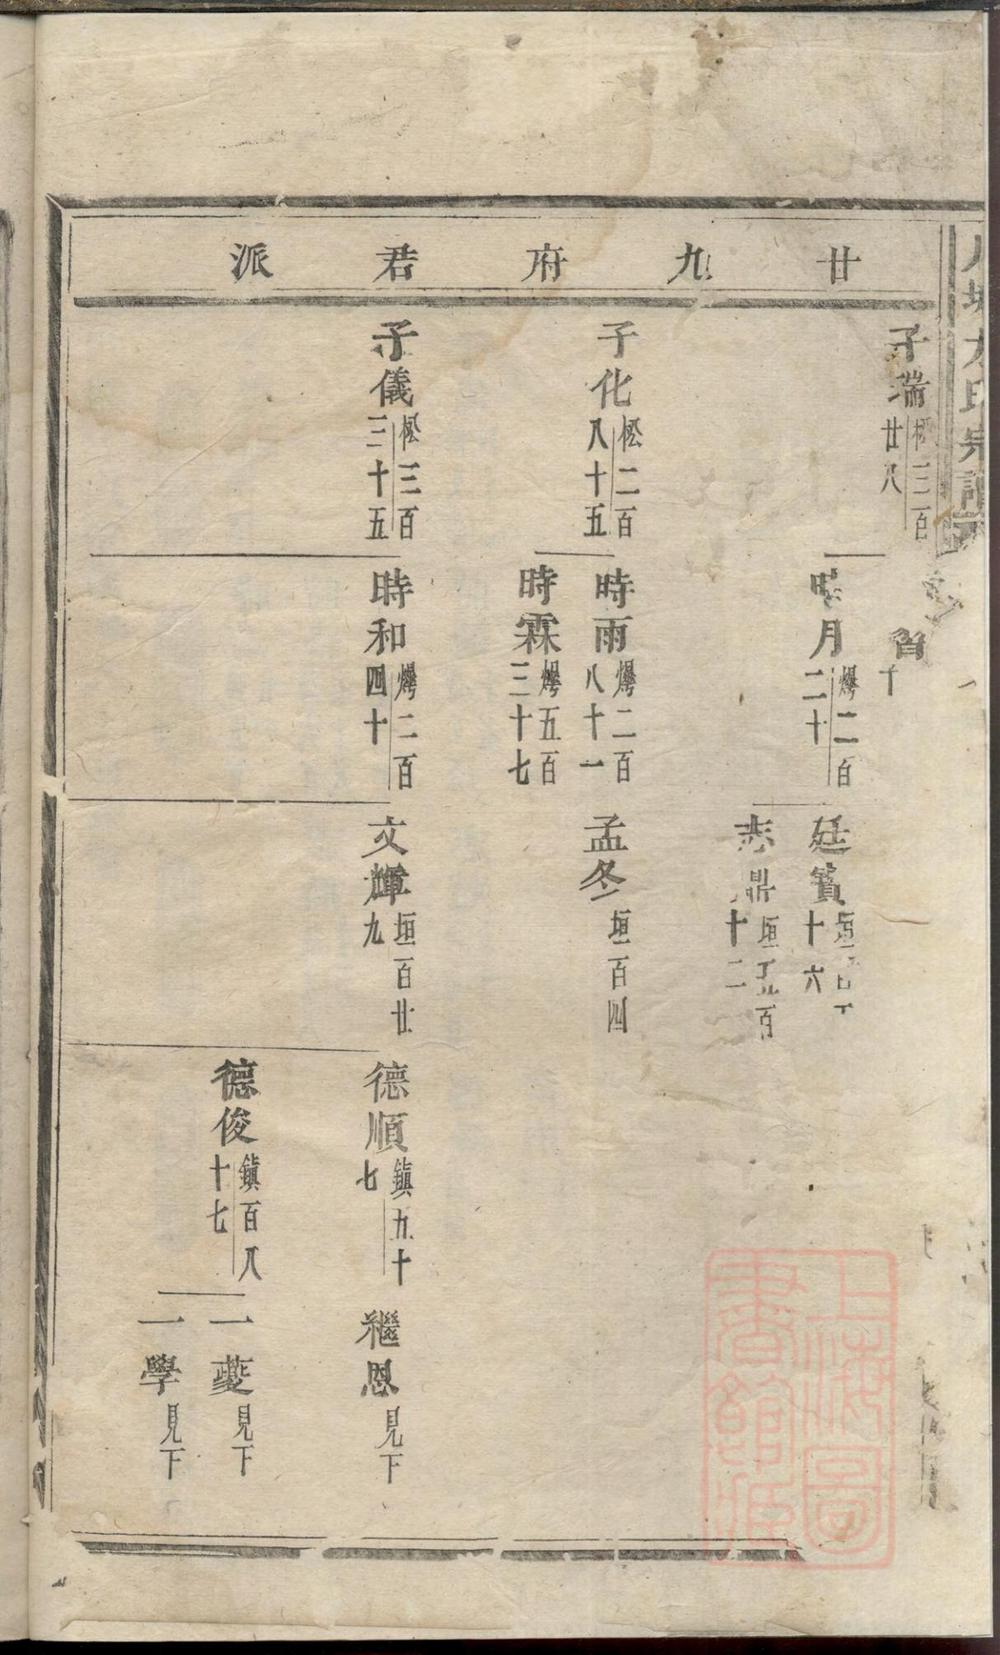 廿九府君派
子瑞 松三百廿八
時月 爆二百二十
廷賓
十六
志鼎 垣五百十二
子化 松二百八十五
時雨 爆二百八十一
時霖 爆五百三十七
孟冬 垣百四
子儀 松三百三十五
時和 爆二百四十
文輝 垣百廿九
德順 鎮九十七
德俊 鎮百八十七
繼恩 見下
一夔 見下
一學 見下
上海圖
書館藏